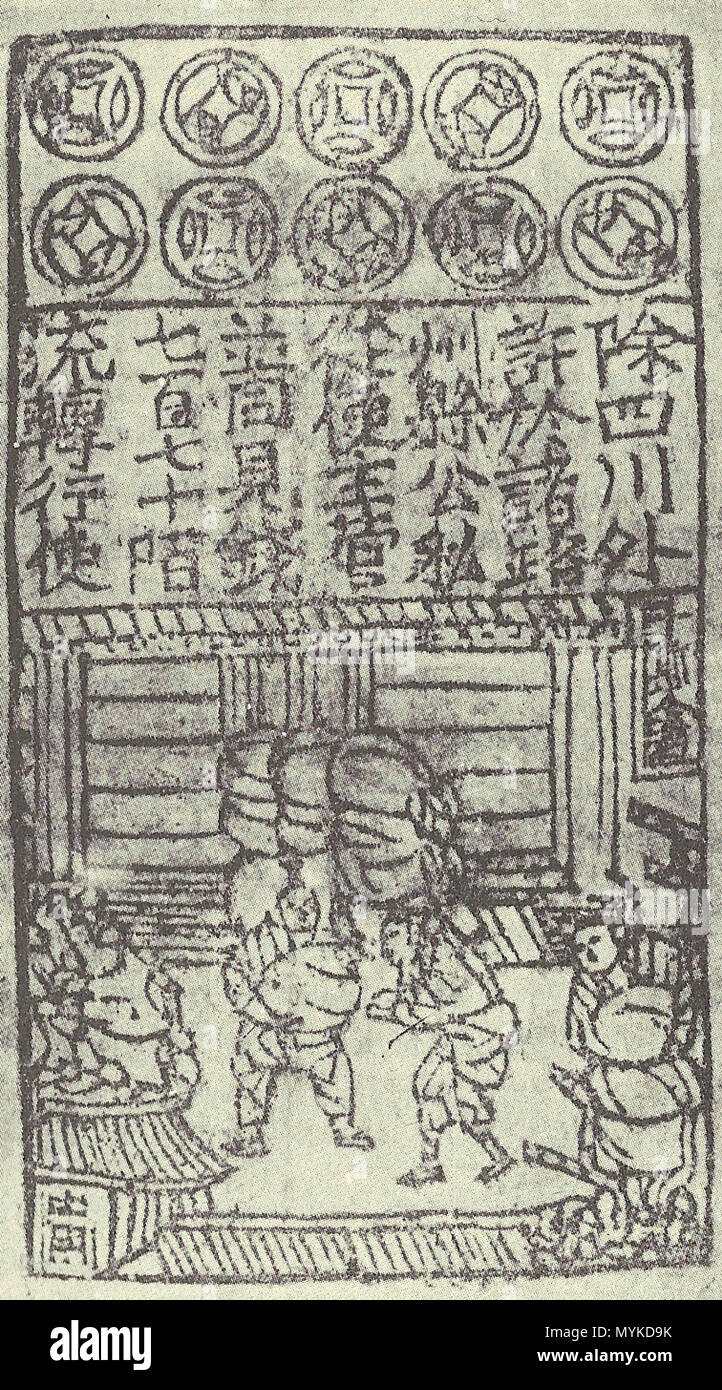 除四川外
許於諸路
州縣公私
從便主管
並同見錢
七百七十陌
流轉行使
alamy
alamy
alamy
alamy
Image ID: MYKD9K
www.alamy.com